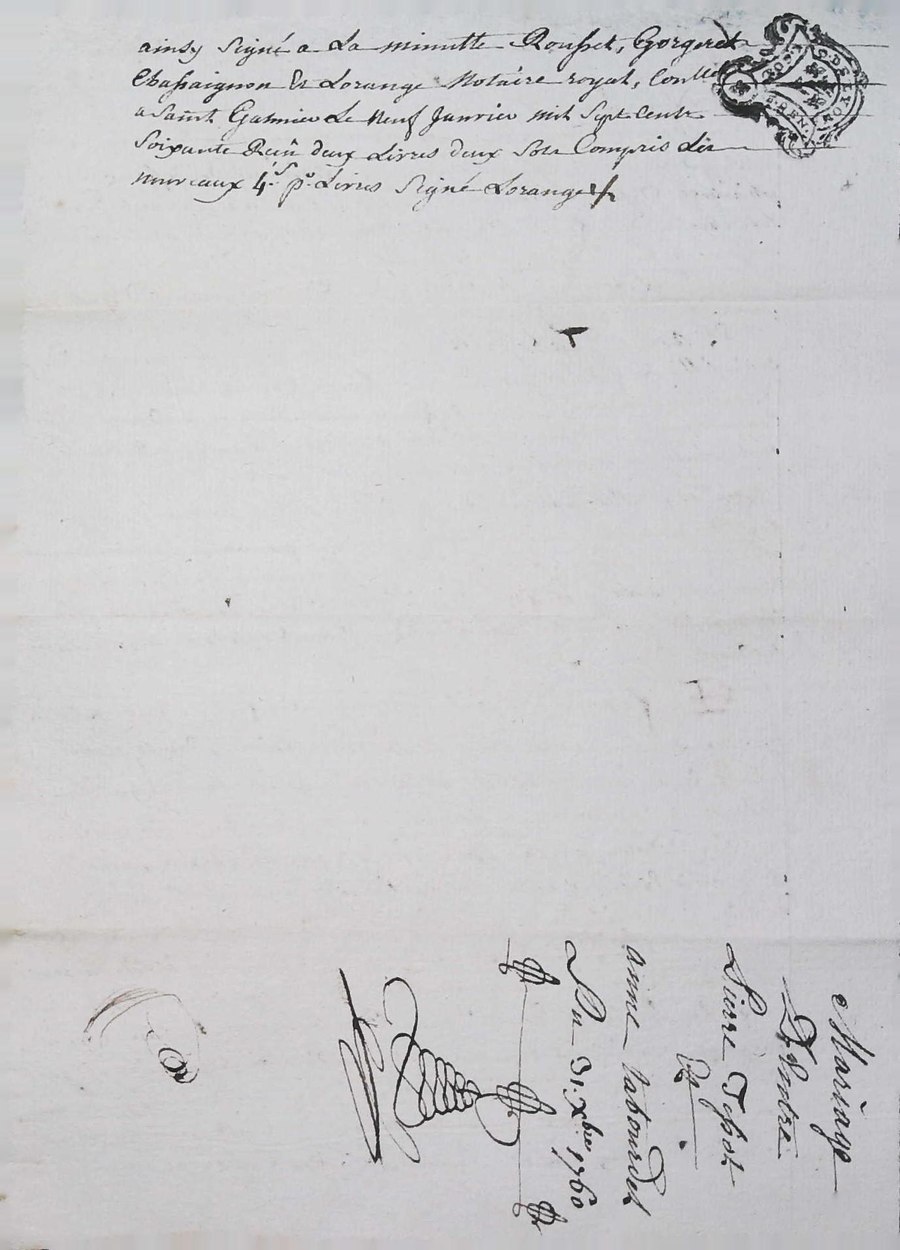 ainsy signé a La minutte Rousset, Gorgeret
Chassaignon Et Lorange Notaire royal, Conllé
a Saint Galmier Le neuf Janvier mil sept Cents
soixante Deux Livres deux sols Compris Les
nouveaux 4.s p.r Livres signé Lorange
Mariage
D'Entre
Pierre
Et
anne
Du 31. Xbre 1760
G. DE LYON